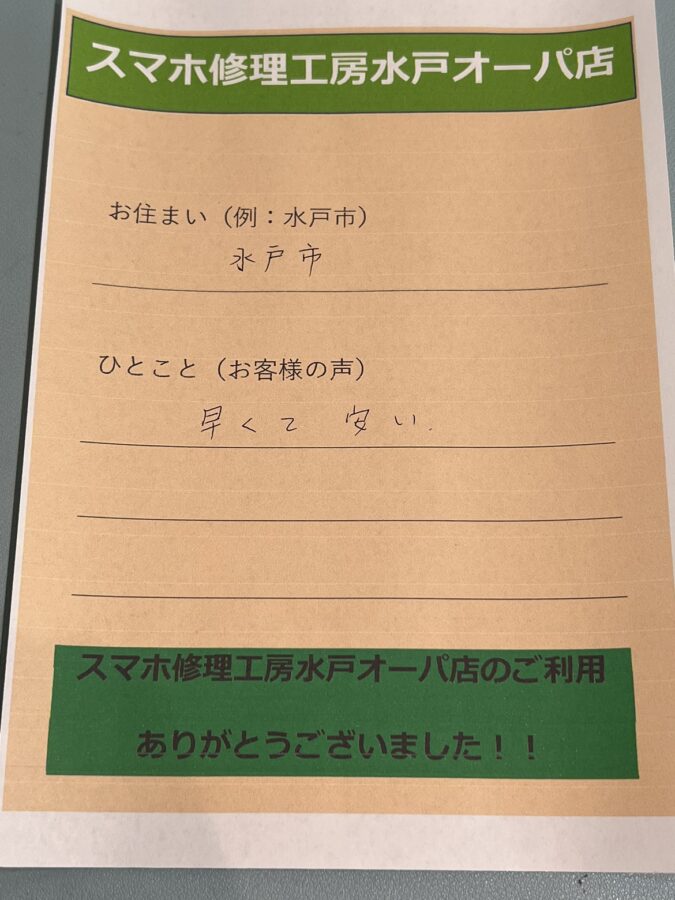 スマホ修理工房水戸オーパ店
お住まい（例：水戸市）
水戸市
ひとこと（お客様の声）
早くて 安い.
スマホ修理工房水戸オーパ店のご利用
ありがとうございました！！